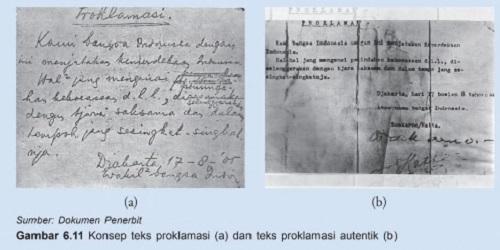 Proklamasi.
Kami bangsa Indonesia dengan
ini menjatakan kemerdekaan Indonesia
Hal² jang mengenai
kekoeasaan d.l.l.,
dengan tjara saksama dan dalam
tempoh jang sesingkat-singkat-
nja.
Djakarta, 17-8-05
Wakil² bangsa Indon
(a)
PROKLAMA
Kami bangsa Indonesia dengan ini menjatakan Kemerdekaan
Indonesia.
Hal-hal jang mengenai pemindahan kekoeasaan d.l.l., di-
selenggarakan dengan tjara saksama dan dalam tempo jang se-
singkat-singkatnja.
Djakarta, hari 17 boelan 8 tahoen
Atas nama bangsa Indonesia.
Soekarno/Hatta.
(b)
Sumber: Dokumen Penerbit
Gambar 6.11 Konsep teks proklamasi (a) dan teks proklamasi autentik (b)